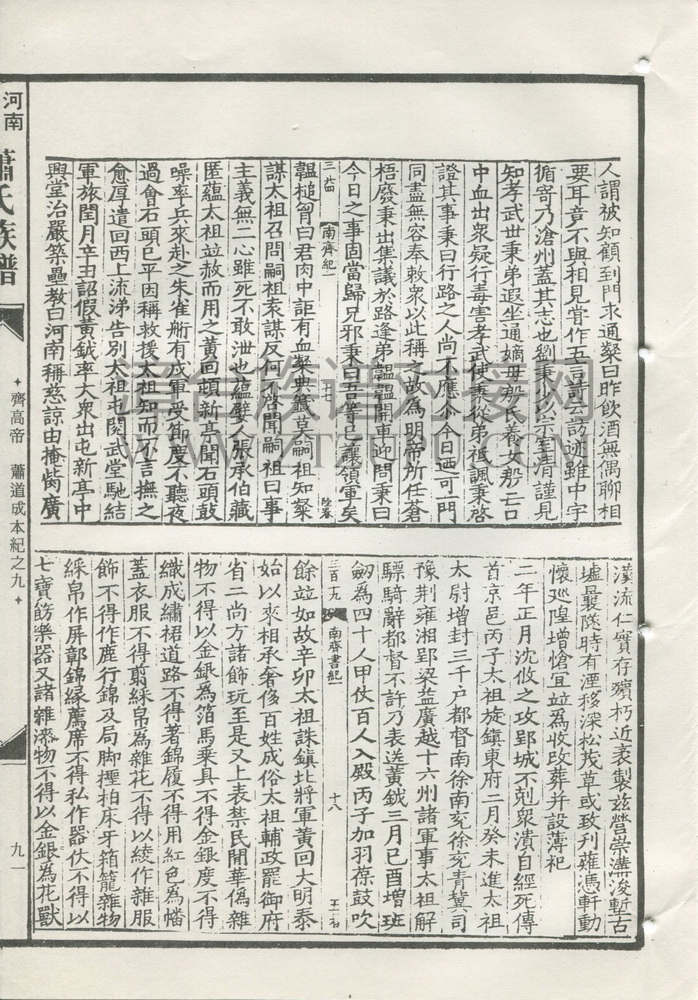 人謂被知顧到門求通粲曰昨飲酒無偶聊相
要耳竟不與相見嘗作五言詩云訪迹雖中宇
循寄乃滄州蓋其志也劉秉少以宗室清謹見
知孝武世秉弟遐坐通嫡母殷氏養女殷亡口
中血出衆疑行毒害孝武使秉從弟祗諷秉啓
證其事秉曰行路之人尚不應尒今日迺可一門
同盡無容奉敕衆以此稱之故爲明帝所任蒼
梧廢秉出集議於路逢弟韞韞開車迎問秉曰
今日之事固當歸兄邪秉曰吾等已讓領軍矣
三六四
南齊紀一
十七
韞搥胷曰君肉中詎有血粲典籤莫嗣祖知粲
謀太祖召問嗣祖袁謀反何不啓聞嗣祖曰事
主義無二心雖死不敢泄也蘊嬖人張承伯藏
匿蘊太祖竝赦而用之黄回頓新亭聞石頭鼓
噪率兵來赴之朱雀𦨵有戍軍受節度不聽夜
過會石頭已平因稱救援太祖知而不言撫之
愈厚遣回西上流涕告别太祖屯閱武堂馳結
軍旅閏月辛丑詔假黄鉞率大衆出屯新亭中
興堂治嚴築壘教曰河南稱慈諒由掩胔廣
漢流仁實存殯朽近袤製兹營崇溝浚塹古
墟曩隧時有湮移深松茂草或致刋薙憑軒動
懷巡隍增愴宜竝爲收改葬并設薄祀
二年正月沈攸之攻郢城不剋衆潰自經死傳
首京邑丙子太祖旋鎮東府二月癸未進太祖
太尉增封三千户都督南徐南兖徐兖青冀司
豫荆雍湘郢梁益廣越十六州諸軍事太祖解
驃騎辭都督不許乃表送黄鉞三月己酉增班
劒爲四十人甲仗百人入殿丙子加羽葆鼓吹
三百十九
南齊書紀一
十八
餘竝如故辛卯太祖誅鎮北將軍黄回大明泰
始以來相承奢侈百姓成俗太祖輔政罷御府
省二尚方諸飾玩至是又上表禁民閒華僞雜
物不得以金銀爲箔馬乗具不得金銀度不得
織成繡裙道路不得著錦履不得用紅色爲幡
蓋衣服不得翦綵帛爲雜花不得以綾作雜服
飾不得作鹿行錦及局脚檉柏床牙箱籠雜物
綵帛作屏鄣錦緣薦席不得私作器仗不得以
七寳飾樂器又諸雜漆物不得以金銀爲花獸
河南
蕭氏族譜
齊高帝 蕭道成本紀之九
九一
尋合族譜對接网
WWW.ZTZUPU.COM